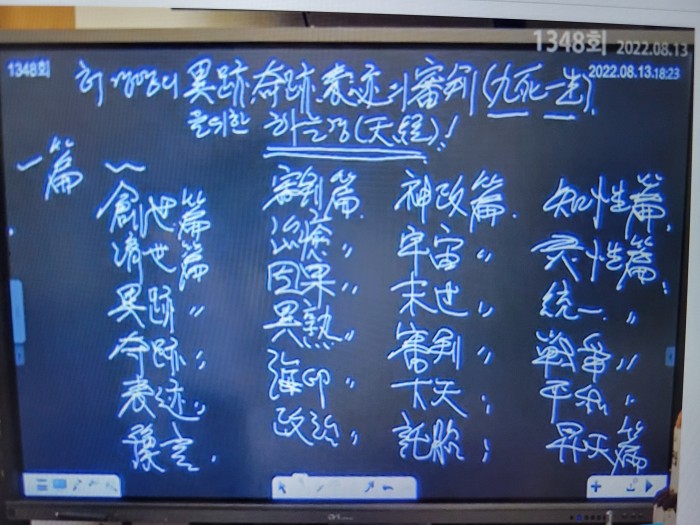 1348회 2022.08.13
1348회
2022.08.13.18:23
허경영의 異跡, 奇跡, 表迹의 審判(九死一生)
을 위한 하늘경(天経)!
一篇
創世篇 篇. 神政篇. 知性篇.
済世篇 〃 宇宙 〃 灵性篇.
異跡 〃 因果 〃 末世 〃 統一 〃
奇跡 〃 異熟 〃 審判 〃 戦爭 〃
表迹 〃 海印 〃 下天 〃 平和 〃
豫言 . 政治 〃 託胎 〃 昇天篇